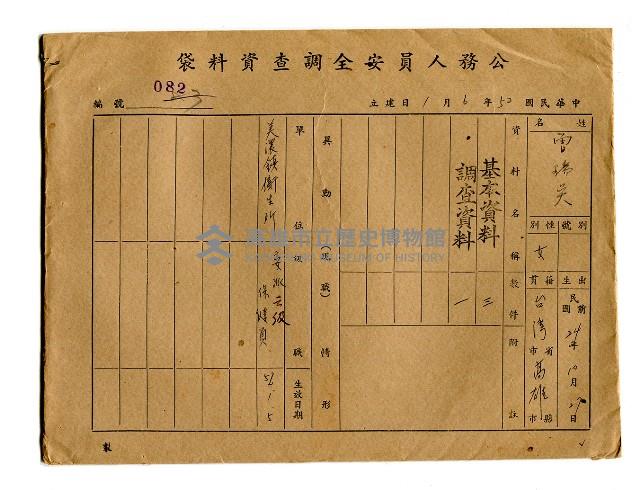 公務人員安全調查資料袋
082
編號
中華民國50年6月1日建立
姓名
曾瑞英
別號
性別
女
出生
民國前24年10月27日
籍貫
台灣省市高雄縣市
資料名稱
件數
附註
基本資料
三
調查資料
一
異動(現職)情形
單位
級職
生效日期
美濃鎮衛生所
委派六級
保健員
51 1 5
高雄市立歷史博物館
KAOHSIUNG MUSEUM OF HISTORY
製